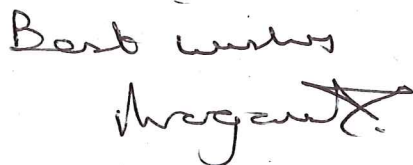 Best wishes
Margaret